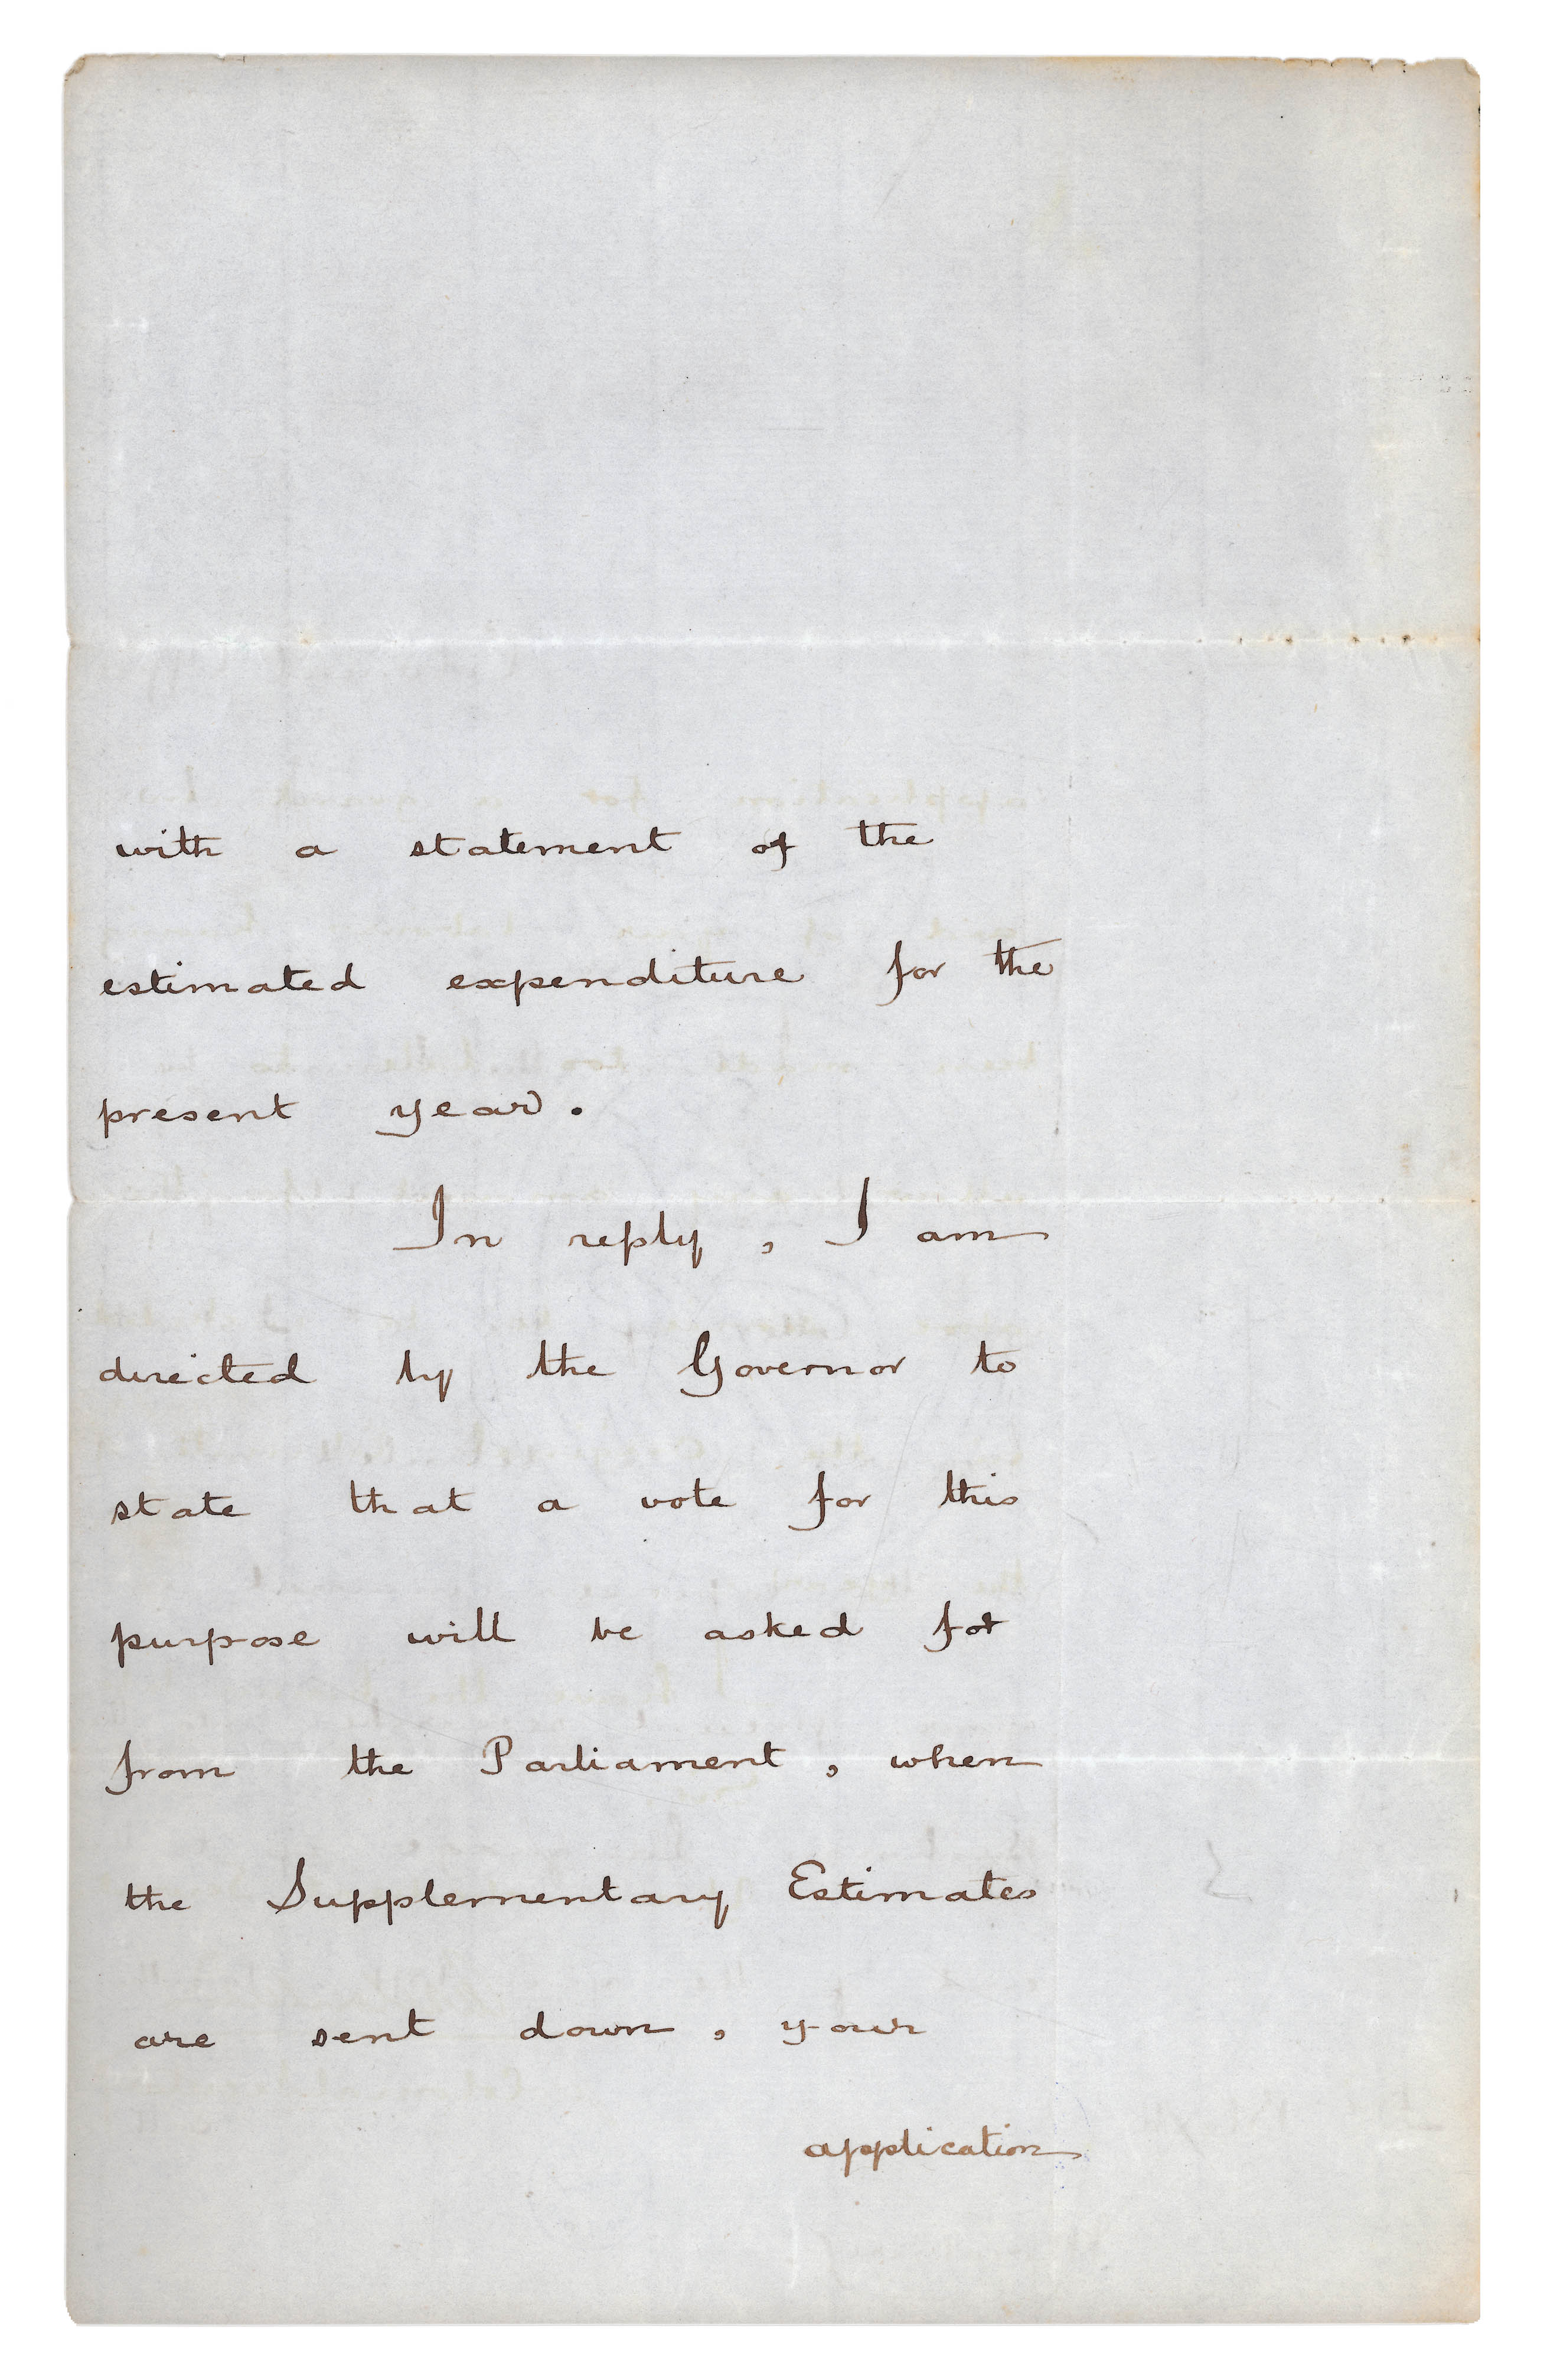 with a statement of the
estimated expenditure for the
present year.
In reply, I am
directed by the Governor to
state that a vote for this
purpose will be asked for
from the Parliament, when
the Supplementary Estimates
are sent down, your
application